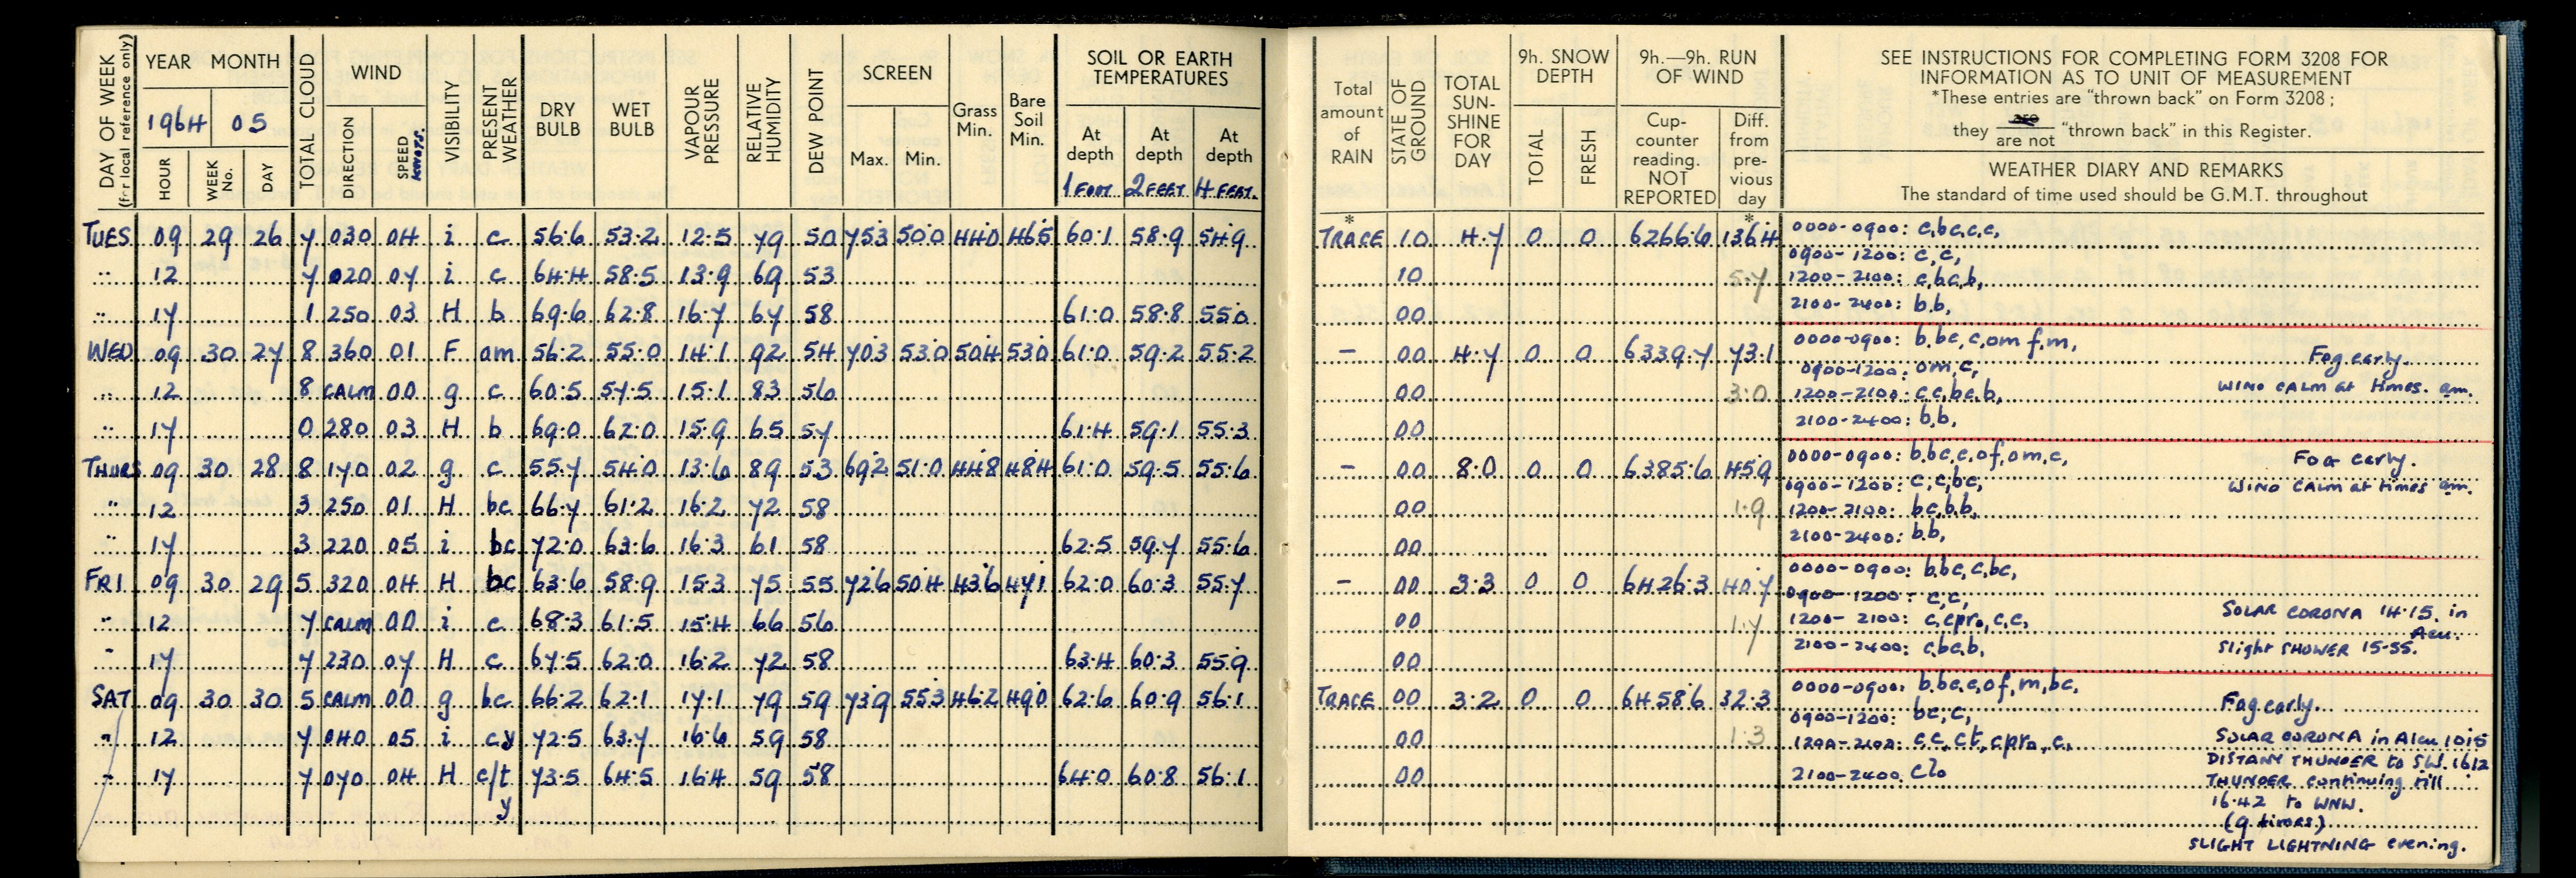 DAY OF WEEK
(for local reference only)
YEAR MONTH
1964 05
HOUR WEEK No. DAY
TOTAL CLOUD
WIND
DIRECTION SPEED KNOTS.
VISIBILITY
PRESENT WEATHER
DRY BULB
WET BULB
VAPOUR PRESSURE
RELATIVE HUMIDITY
DEW POINT
SCREEN
Max. Min.
Grass Min.
Bare Soil Min.
SOIL OR EARTH
TEMPERATURES
At depth 1 FOOT. At depth 2 FEET. At depth 4 FEET.
Total amount of RAIN
STATE OF GROUND
TOTAL SUN-SHINE FOR DAY
9h. SNOW DEPTH
TOTAL FRESH
9h.—9h. RUN OF WIND
Cup-counter reading. NOT REPORTED
Diff. from pre-vious day
SEE INSTRUCTIONS FOR COMPLETING FORM 3208 FOR
INFORMATION AS TO UNIT OF MEASUREMENT
*These entries are "thrown back" on Form 3208;
they are / are not "thrown back" in this Register.
WEATHER DIARY AND REMARKS
The standard of time used should be G.M.T. throughout
* *
TUES 09 29 26 7 030 04 i c 56.6 53.2 12.5 79 50 75.3 50.0 44.0 46.5 60.1 58.9 54.9 TRACE 10 4.7 0 0 6266.6 136.4 0000-0900: c,bc,c,c,
0900-1200: c,c,
" 12 7 020 07 i c 64.4 58.5 13.9 69 53 10 5.7 1200-2100: c,bc,b,
2100-2400: b,b,
" 17 1 250 03 H b 69.6 62.8 16.7 67 58 61.0 58.8 55.0 00
WED 09 30 27 8 360 01 F om 56.2 55.0 14.1 92 54 70.3 53.0 50.4 53.0 61.0 59.2 55.2 – 00 4.7 0 0 6339.7 73.1 0000-0900: b,bc,c,om f,m, Fog early.
0900-1200: om,c,
" 12 8 CALM 00 g c 60.5 57.5 15.1 83 56 00 3.0 1200-2100: c,c,bc,b, WIND CALM at times. am.
2100-2400: b,b,
" 17 0 280 03 H b 69.0 62.0 15.9 65 57 61.4 59.1 55.3 00
THURS 09 30 28 8 170 02 g c 55.7 54.0 13.6 89 53 69.2 51.0 44.8 48.4 61.0 59.5 55.6 – 00 8.0 0 0 6385.6 45.9 0000-0900: b,bc,c,of,om,c, Fog early.
0900-1200: c,c,bc, WIND CALM at times am.
" 12 3 250 01 H bc 66.7 61.2 16.2 72 58 00 1.9 1200-2100: bc,b,b,
2100-2400: b,b,
" 17 3 220 05 i bc 72.0 63.6 16.3 61 58 62.5 59.7 55.6 00
FRI 09 30 29 5 320 04 H bc 63.6 58.9 15.3 75 55 72.6 50.4 43.6 47.1 62.0 60.3 55.7 – 00 3.3 0 0 6426.3 40.7 0000-0900: b,bc,c,bc,
0900-1200: c,c,
" 12 7 CALM 00 i c 68.3 61.5 15.4 66 56 00 1.7 1200-2100: c,cpro,c,c, SOLAR CORONA 14.15. in Acu.
2100-2400: c,bc,b, Slight SHOWER 15-55.
" 17 7 230 07 H c 67.5 62.0 16.2 72 58 63.4 60.3 55.9 00
SAT 09 30 30 5 CALM 00 g bc 66.2 62.1 17.1 79 59 73.9 55.3 46.2 49.0 62.6 60.9 56.1 TRACE 00 3.2 0 0 6458.6 32.3 0000-0900: b,bc,c,of,m,bc, Fog early.
0900-1200: bc,c,
" 12 7 040 05 i cy 72.5 63.7 16.6 59 58 00 1.3 1200-2100: c,c,ct,cpro,c, SOLAR CORONA in Alcu 1015
DISTANT THUNDER to SW. 1612
" 17 7 070 04 H c/t y 73.5 64.5 16.4 59 58 64.0 60.8 56.1 00 2100-2400. clo
THUNDER continuing till
16.42 to WNW.
(9 times)
SLIGHT LIGHTNING evening.